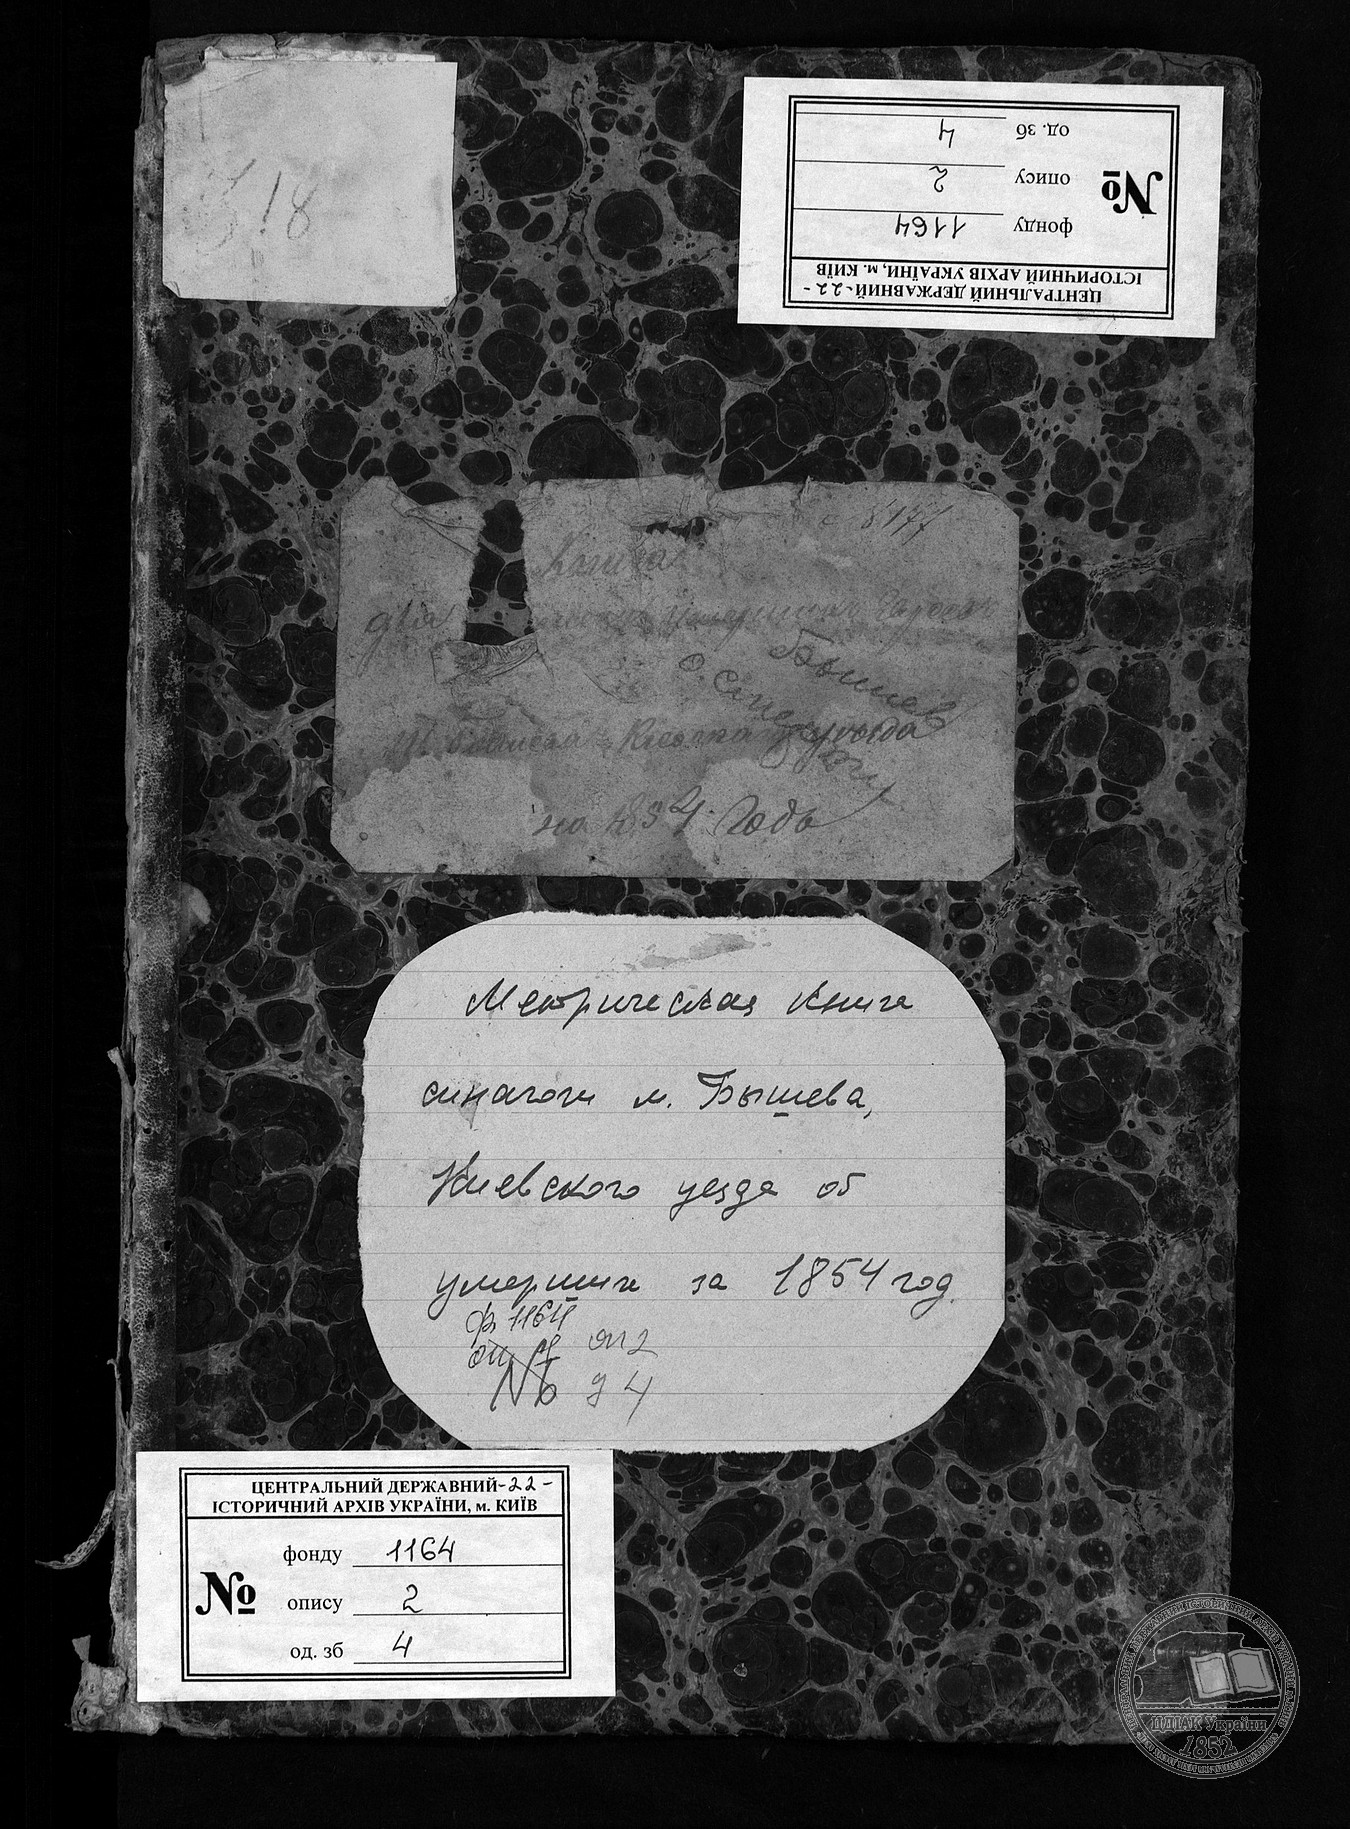 18
ЦЕНТРАЛЬНИЙ ДЕРЖАВНИЙ -22-
ІСТОРИЧНИЙ АРХІВ УКРАЇНИ, м. КИЇВ
№
фонду 1164
опису 2
од. зб 4
Книга
для умерших Евреев
Бышев
на 1854 Годъ
Метрическая книга
синагоги м. Бышева,
Киевского уезда об
умерших за 1854 год.
ф. 1164
оп 2
№ д 4
ЦЕНТРАЛЬНИЙ ДЕРЖАВНИЙ -22-
ІСТОРИЧНИЙ АРХІВ УКРАЇНИ, м. КИЇВ
№
фонду 1164
опису 2
од. зб 4
ЦДІАК України
1852